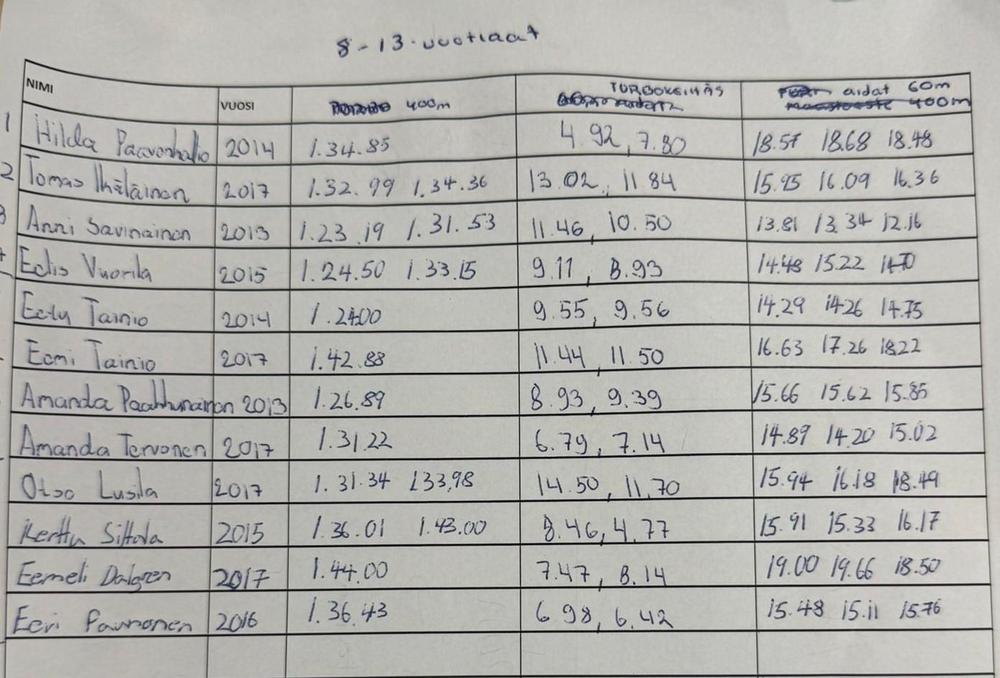 8-13-vuotiaat
NIMI VUOSI 400m TURBOKEIHÄS aidat 60m
400m
1 Hilda Paavonhalio 2014 1.34.85 4.92, 7.80 18.57 18.68 18.48
2 Tomas Ihalainen 2017 1.32.99 1.34.36 13.02, 11.84 15.95 16.09 16.36
3 Anni Savinainen 2013 1.23.19 1.31.53 11.46, 10.50 13.81 13.34 12.16
Vuorila 2015 1.24.50 1.33.15 9.11, 8.93 14.48 15.22
Tainio 2014 1.24.00 9.55, 9.56 14.29 14.26 14.75
Eemi Tainio 2017 1.42.88 11.44, 11.50 16.63 17.26 18.22
Amanda 2013 1.26.89 8.93, 9.39 15.66 15.62 15.85
Amanda Tervonen 2017 1.31.22 6.79, 7.14 14.89 14.20 15.02
Otso Lusila 2017 1.31.34 1.33,98 14.50, 11.70 15.94 16.18 18.49
Kerttu Siltala 2015 1.36.01 1.43.00 8.46, 4.77 15.91 15.33 16.17
Eemeli Dalgren 2017 1.44.00 7.47, 8.14 19.00 19.66 18.50
Eevi Paunonen 2016 1.36.43 6.98, 6.42 15.48 15.11 15.76